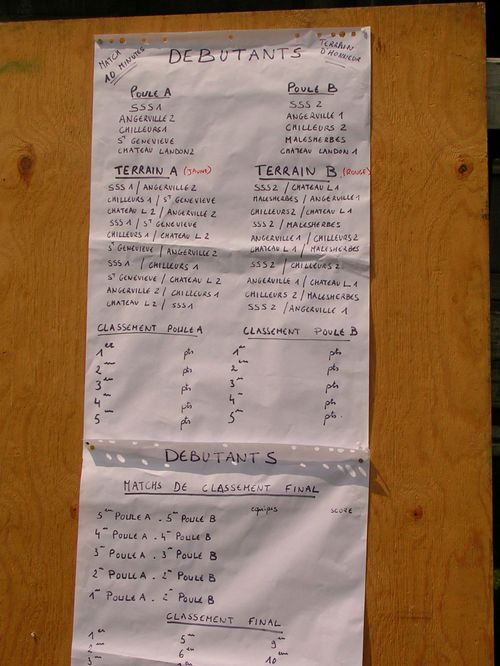 MATCH
10 MINUTES
DEBUTANTS
TERRAIN
D'HONNEUR
POULE A
SSS1
ANGERVILLE 2
CHILLEURS 1
ST GENEVIEVE
CHATEAU LANDON 2
POULE B
SSS 2
ANGERVILLE 1
CHILLEURS 2
MALESHERBES
CHATEAU LANDON 1
TERRAIN A (JAUNE)
SSS 1 / ANGERVILLE 2
CHILLEURS 1 / ST GENEVIEVE
CHATEAU L 2 / ANGERVILLE 2
SSS 1 / ST GENEVIEVE
CHILLEURS 1 / CHATEAU L 2
ST GENEVIEVE / ANGERVILLE 2
SSS 1 / CHILLEURS 1
ST GENEVIEVE / CHATEAU L 2
ANGERVILLE 2 / CHILLEURS 1
CHATEAU L 2 / SSS 1
TERRAIN B (ROUGE)
SSS 2 / CHATEAU L 1
MALESHERBES / ANGERVILLE 1
CHILLEURS 2 / CHATEAU L 1
SSS 2 / MALESHERBES
ANGERVILLE 1 / CHILLEURS 2
CHATEAU L 1 / MALESHERBES
SSS 2 / CHILLEURS 2
ANGERVILLE 1 / CHATEAU L 1
CHILLEURS 2 / MALESHERBES
SSS 2 / ANGERVILLE 1
CLASSEMENT POULE A
1er pts
2em pts
3em pts
4em pts
5em pts
CLASSEMENT POULE B
1er pts
2em pts
3em pts
4em pts
5em pts.
DEBUTANTS
MATCHS DE CLASSEMENT FINAL
equipes SCORE
5em POULE A . 5em POULE B
4em POULE A . 4em POULE B
3em POULE A . 3em POULE B
2em POULE A . 2em POULE B
1er POULE A . 2em POULE B
CLASSEMENT FINAL
1er 5em 9em
2em 6em 10em
3em